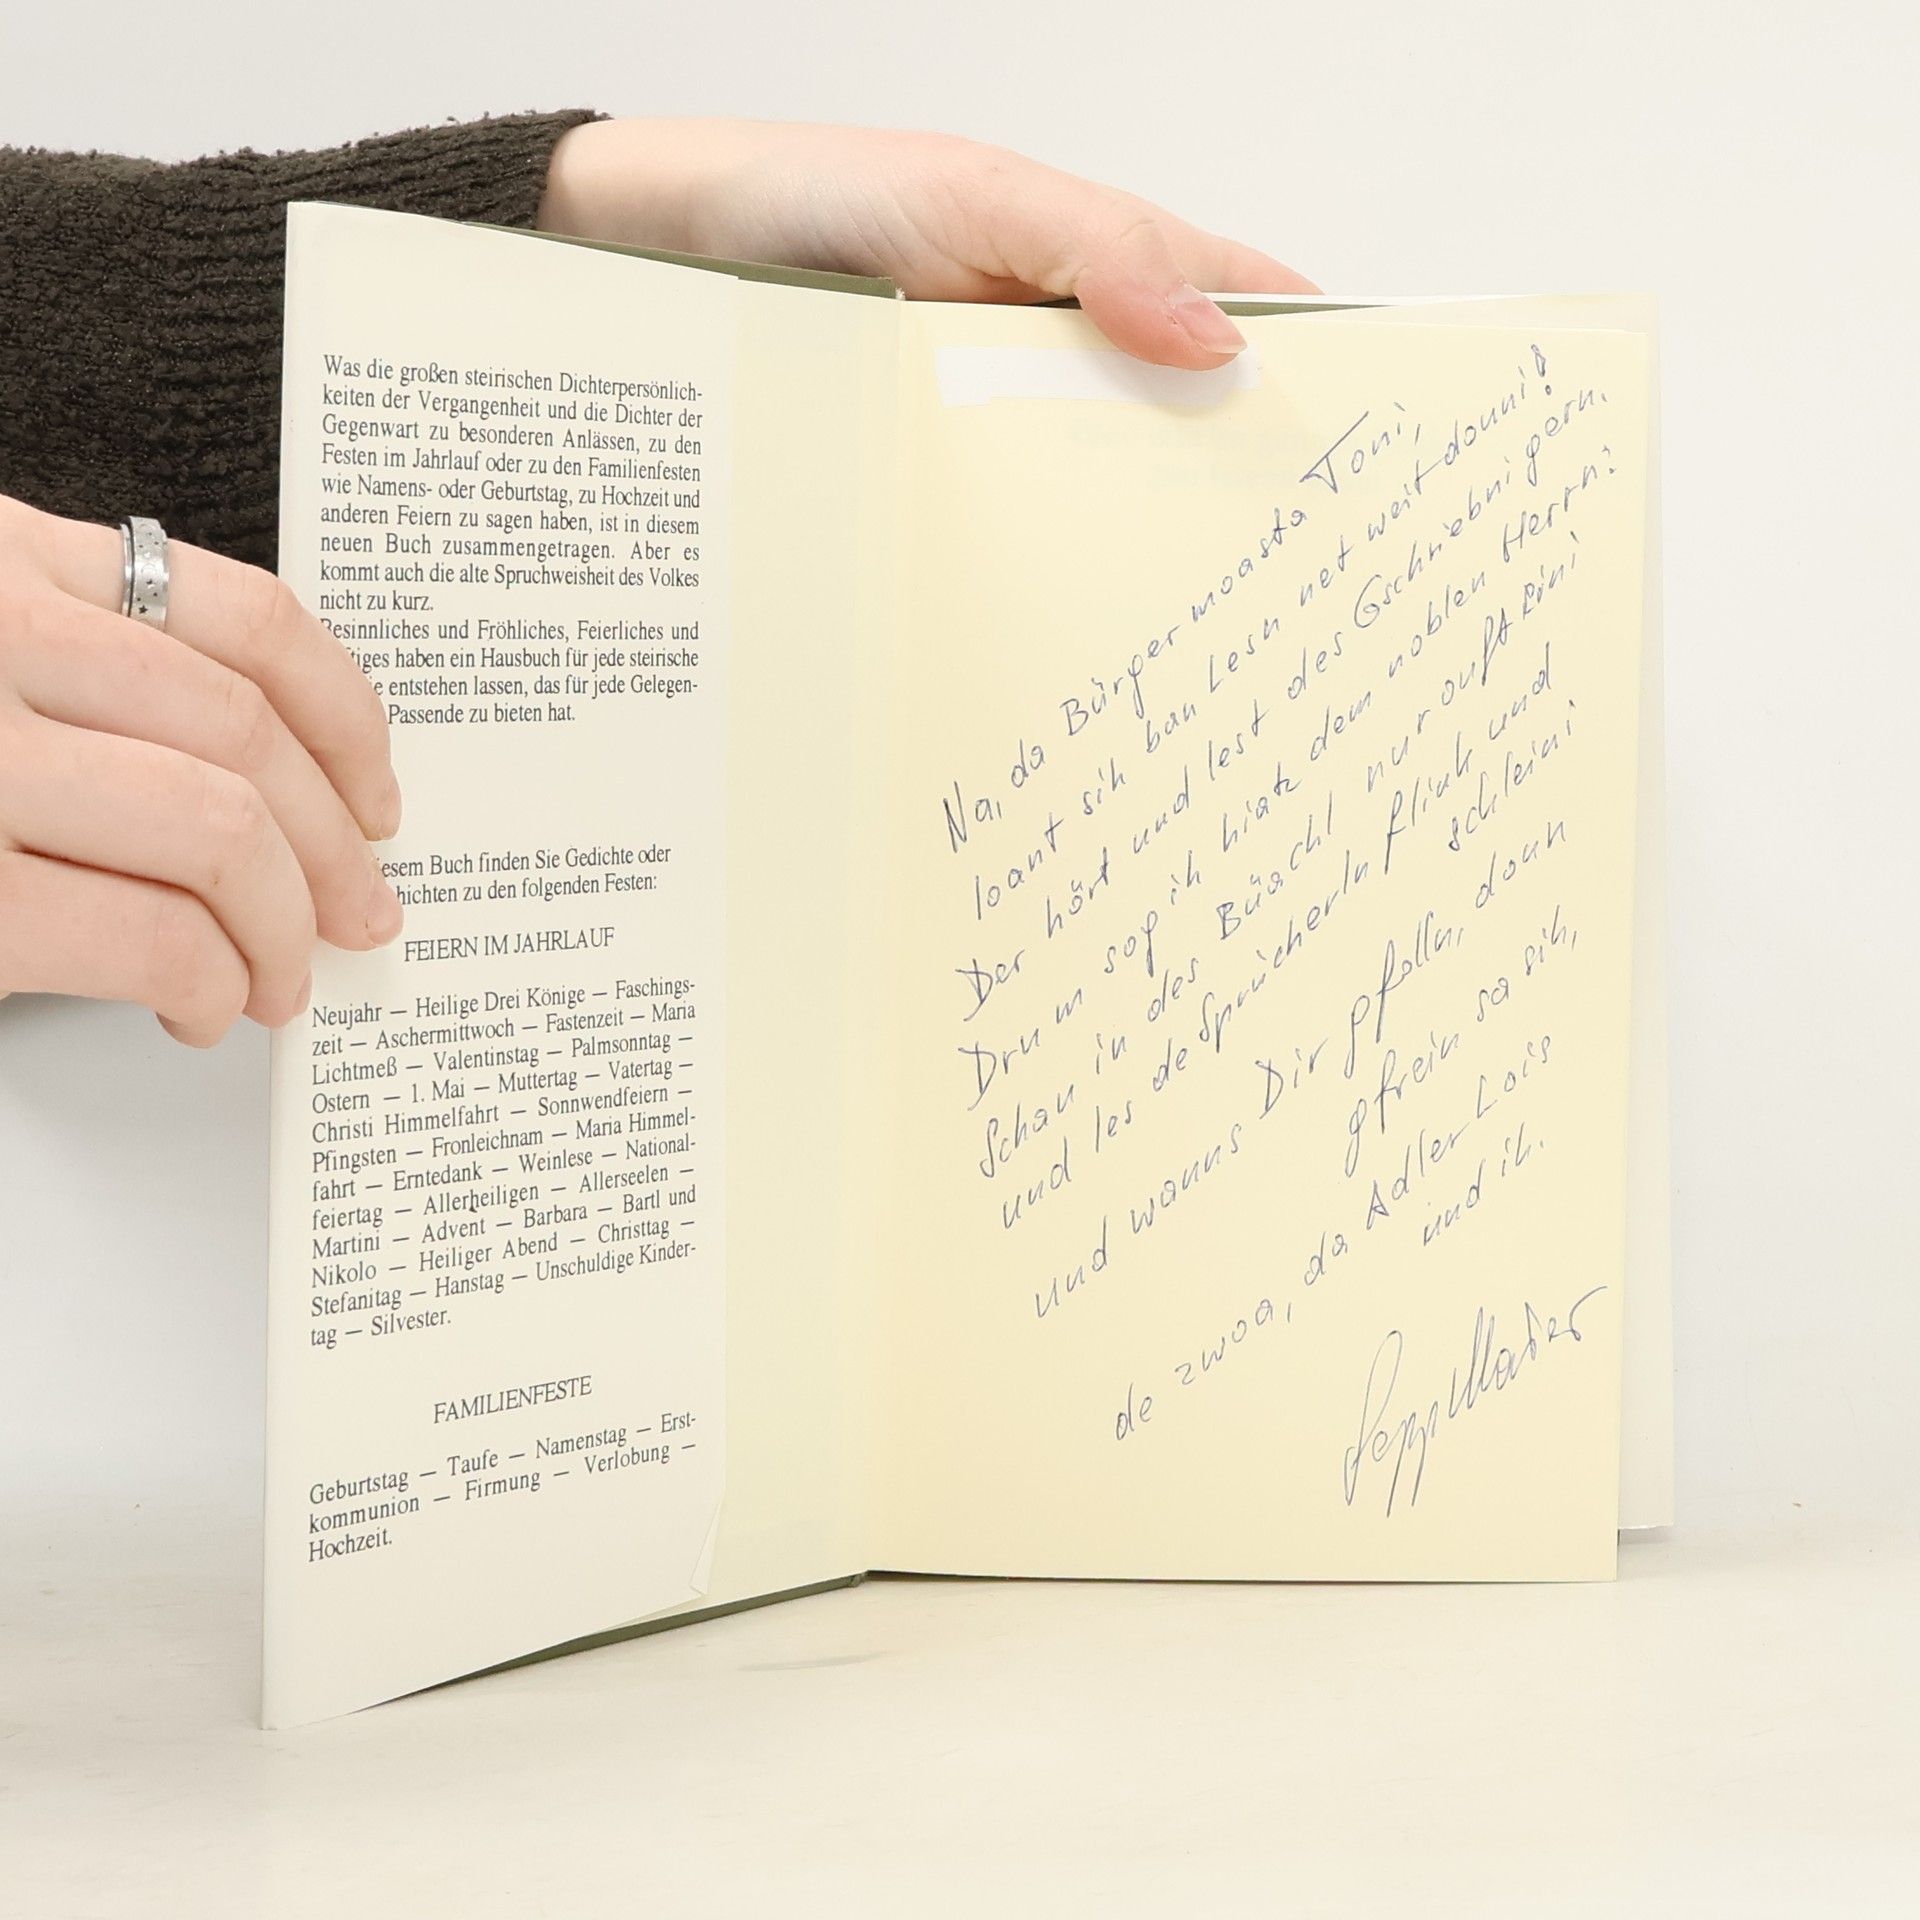 Was die großen steirischen Dichterpersönlich-
keiten der Vergangenheit und die Dichter der
Gegenwart zu besonderen Anlässen, zu den
Festen im Jahrlauf oder zu den Familienfesten
wie Namens- oder Geburtstag, zu Hochzeit und
anderen Feiern zu sagen haben, ist in diesem
neuen Buch zusammengetragen. Aber es
kommt auch die alte Spruchweisheit des Volkes
nicht zu kurz.
Besinnliches und Fröhliches, Feierliches und
tiges haben ein Hausbuch für jede steirische
ie entstehen lassen, das für jede Gelegen-
Passende zu bieten hat.
esem Buch finden Sie Gedichte oder
hichten zu den folgenden Festen:
FEIERN IM JAHRLAUF
Neujahr — Heilige Drei Könige — Faschings-
zeit — Aschermittwoch — Fastenzeit — Maria
Lichtmeß — Valentinstag — Palmsonntag —
Ostern — 1. Mai — Muttertag — Vatertag —
Christi Himmelfahrt — Sonnwendfeiern —
Pfingsten — Fronleichnam — Maria Himmel-
fahrt — Erntedank — Weinlese — National-
feiertag — Allerheiligen — Allerseelen —
Martini — Advent — Barbara — Bartl und
Nikolo — Heiliger Abend — Christtag —
Stefanitag — Hanstag — Unschuldige Kinder-
tag — Silvester.
FAMILIENFESTE
Geburtstag — Taufe — Namenstag — Erst-
kommunion — Firmung — Verlobung —
Hochzeit.
Na, da Bürgermoasta Toni,
loant sih ban Lesn net weit donni!
Der hört und lest des Gschriebni gern.
Drum sog ih hiatz dem noblen Herrn:
Schau in des Büachl nur ouft eini
und les de Sprücherln flink und
schleini
und wanns Dir gfolln, donn
gfrein sa sih,
de zwoa, da Adler Lois
und ih.
Sepp Maier